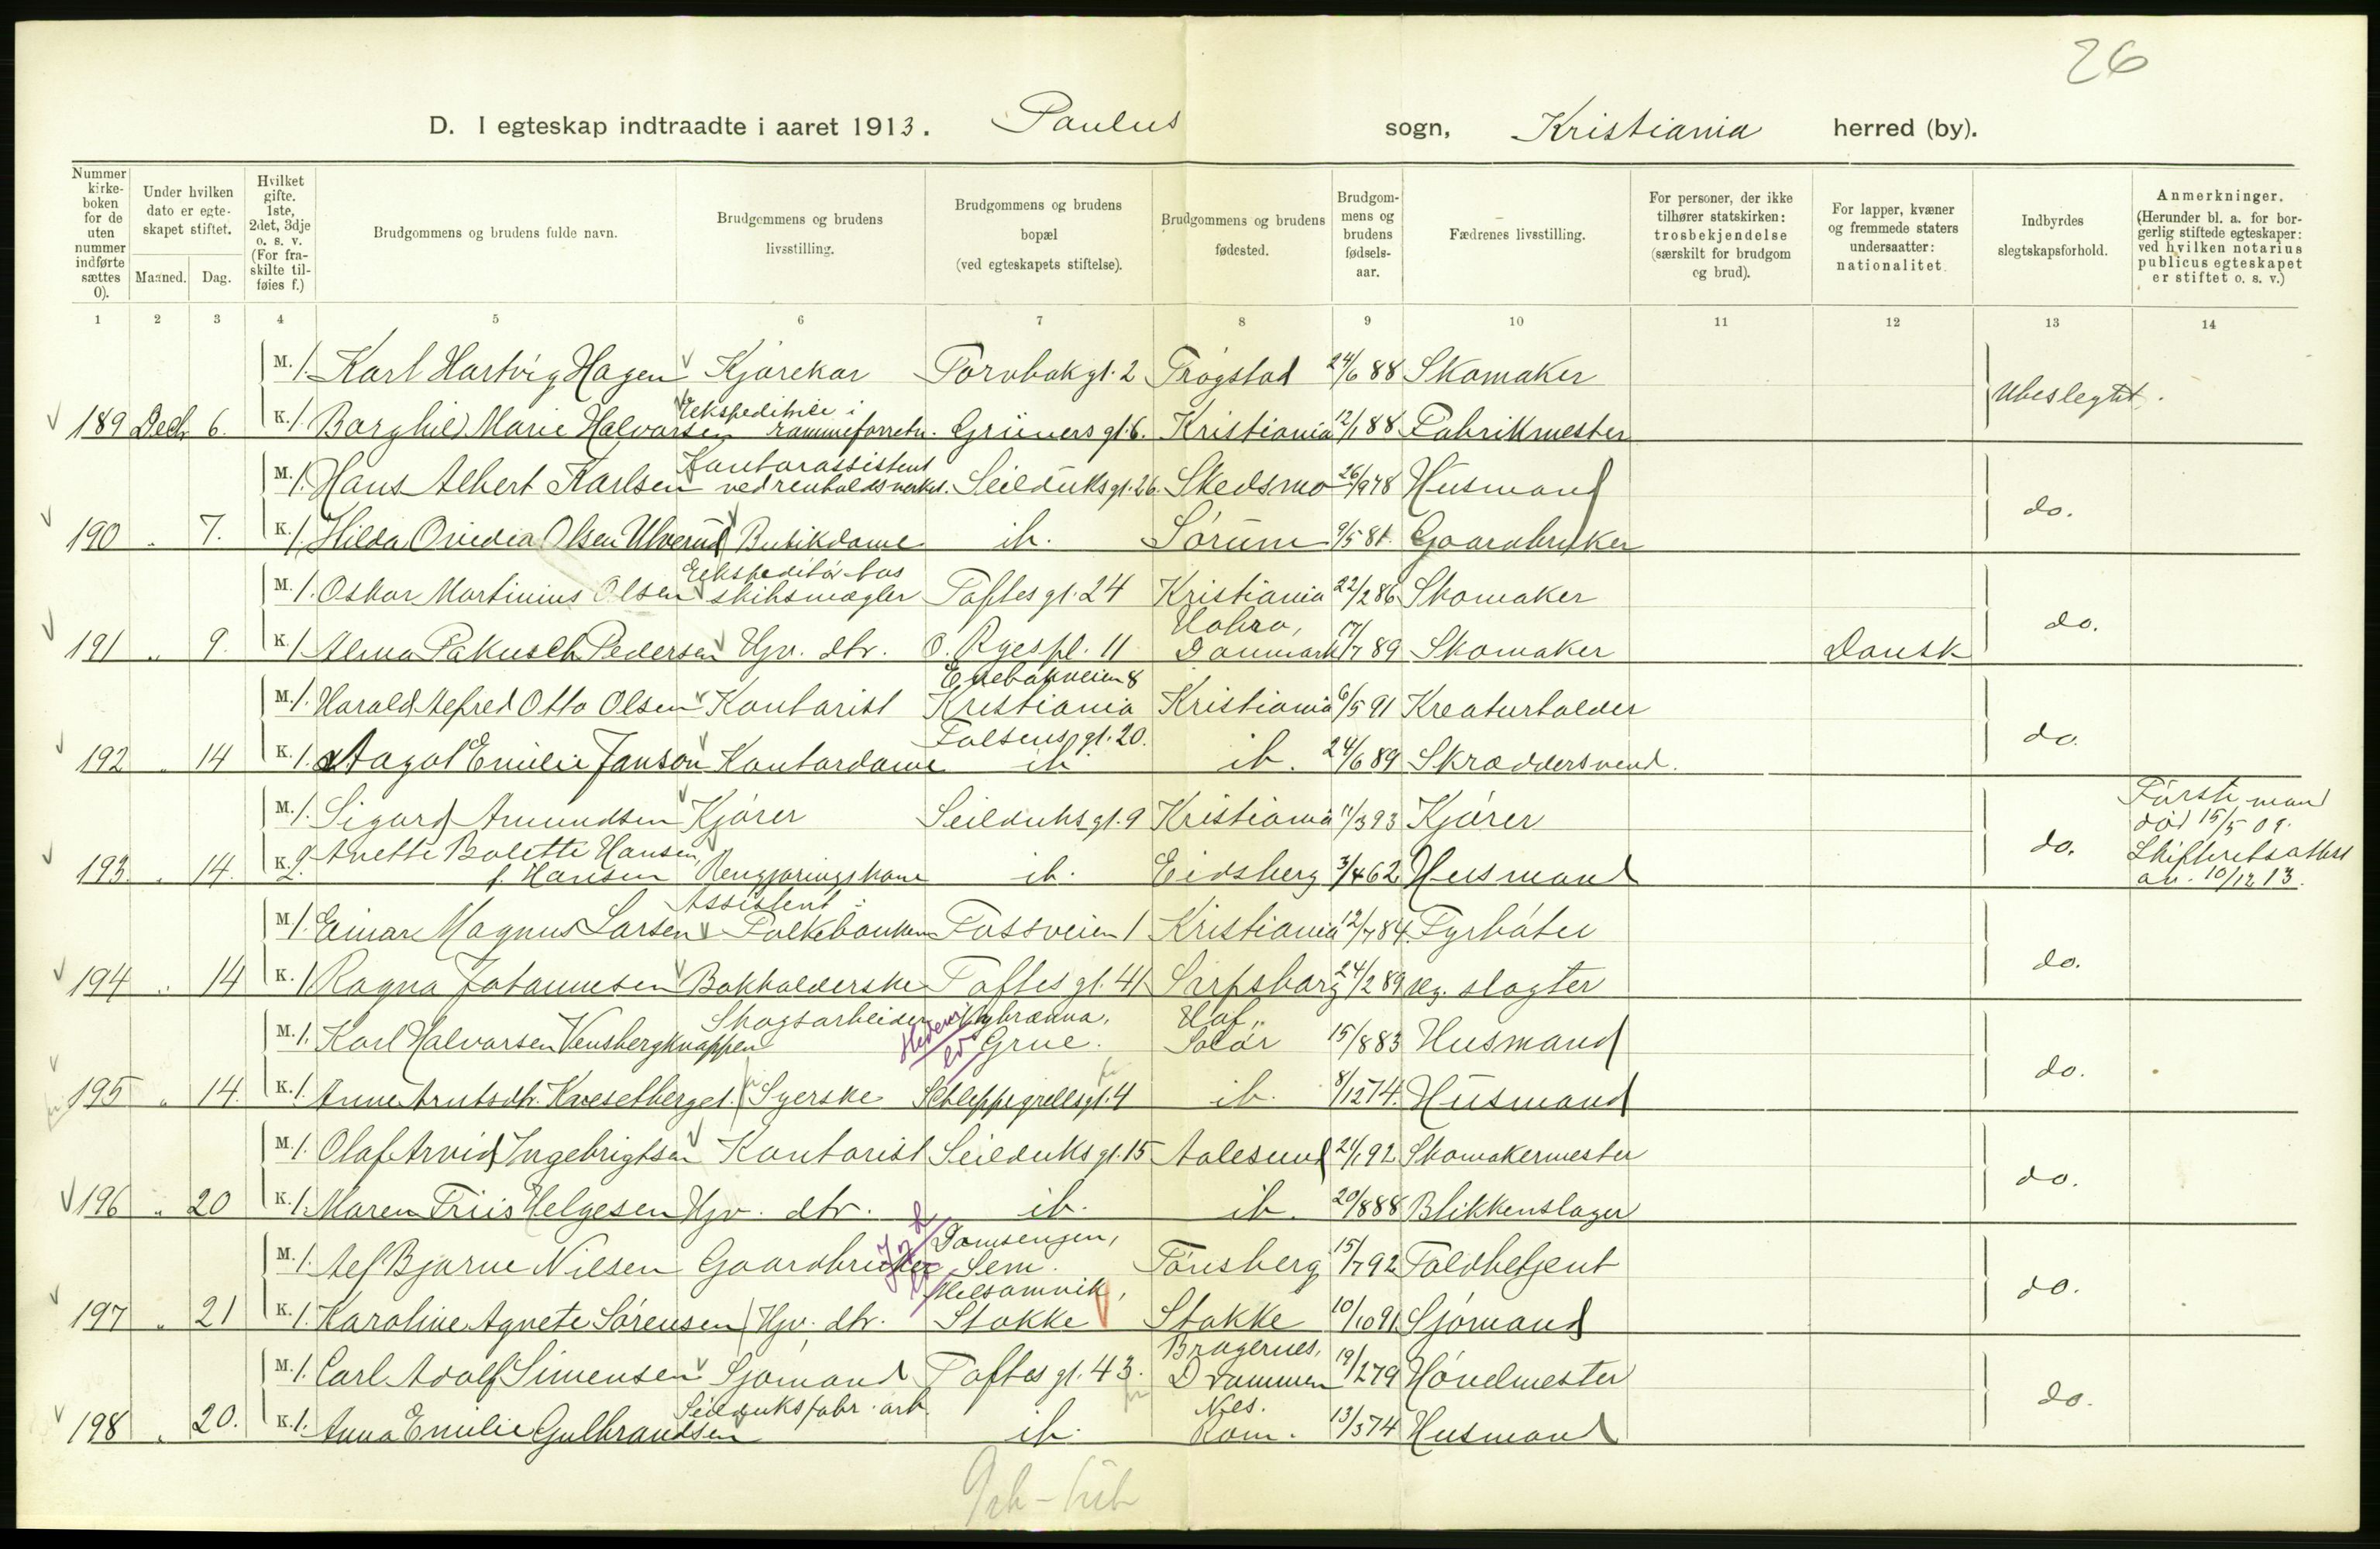 26
D. I egteskap indtraadte i aaret 1913. Paulus sogn, Kristiania herred (by).
Nummer kirkeboken for de uten nummer indførte sættes 0).
Under hvilken dato er egteskapet stiftet.
Maaned. Dag.
Hvilket gifte. 1ste, 2det, 3dje o. s. v. (For fraskilte tilføies f.)
Brudgommens og brudens fulde navn.
Brudgommens og brudens livsstilling.
Brudgommens og brudens bopæl (ved egteskapets stiftelse).
Brudgommens og brudens fødested.
Brudgommens og brudens fødselsaar.
Fædrenes livsstilling.
For personer, der ikke tilhører statskirken: trosbekjendelse (særskilt for brudgom og brud).
For lapper, kvæner og fremmede staters undersaatter: nationalitet.
Indbyrdes slegtskapsforhold.
Anmerkninger. (Herunder bl. a. for borgerlig stiftede egteskaper: ved hvilken notarius publicus egteskapet er stiftet o. s. v.)
1 2 3 4 5 6 7 8 9 10 11 12 13 14
M. 1. Karl Hartvig Hagen Kjørekar Tornbakgt. 2 Trøgstad 24/6 88 Skomaker
189 Decb 6. K. 1. Borghild Marie Halvorsen Ekspeditrice i rammeforretn. Grüners gt. 6. Kristiania 12/1 88 Fabrikmester Ubeslegtet.
M. 1. Hans Albert Karlsen Kontorassistent ved renholdsverket. Seilduksgt. 26. Skedsmo 26/9 78 Husmand
190 " 7. K. 1. Hilda Ovedia Olsen Ulverud Butikdame ib. Sørum 9/5 81. Gaardbruker do.
M. 1. Oskar Martinius Olsen Ekspeditør hos skibsmægler Toftesgt. 24 Kristiania 22/2 86 Skomaker
191 " 9. K. 1. Alma Pakusch Pedersen Hjv. dtr. O. Ryespl. 11 Hobro, Danmark 17/7 89 Skomaker Dansk do.
M. 1. Harald Alfred Otto Olsen Kontorist Enebakveien 8 Kristiania Kristiania 6/5 91 Kreaturholder
192 " 14 K. 1. Aagot Emilie Janson Kontordame Falsens gt. 20. ib ib. 24/6 89 Skræddersvend. do.
M. 1. Sigurd Amundsen Kjører Seilduksgt. 9 Kristiania 11/3 93 Kjører
193. " 14. K. 2. Anette Bolette Hansen, f. Hansen Rengjøringskone ib. Eidsberg 3/4 62 Husmand do. Første mand død 15/5 09. Skifteretsattest av 10/12 13.
M. 1. Einar Magnus Larsen Assistent i Folkebanken Fossveien 1 Kristiania 12/7 84. Fyrbøter
194 " 14 K. 1 Ragna Johannesen Bokholderske Toftes gt. 41 Sarpsborg 24/2 89 slagter do.
M. 1. Karl Halvorsen Vensbergknappen Skogsarbeider Grue. Hof, Solør 15/8 83 Husmand
195 " 14. K. 1. Anne Arntsdtr. Kveselberget. Syerske Schleppegrellsgt. 4 ib. 8/12 74. Husmand do.
M. 1. Olaf Arvid Ingebrigtsen Kontorist Seilduksgt. 15 Aalesund 24/1 92 Skomakermester
196 " 20 K. 1. Maren Friis Helgesen Hjv. dtr. ib. ib. 20/8 88 Blikkenslager do.
M. 1. Alf Bjarne Nilsen Gaardbruker Jomsengen, Sem. Tønsberg 15/7 92 Toldbetjent
197 " 21 K. 1. Karoline Agnete Sørensen Hjv. dtr. Melsomvik, Stokke Stokke 10/10 91. Sjømand do.
M. 1. Carl Adolf Simensen Sjømand Toftes gt. 43. Bragernes, Drammen 19/2 79 Høvelmester
198 " 20. K. 1. Anna Emilie Gulbrandsen Seilduksfabr. arb. ib. Nes. Rom. 13/3 74 Husmand do.